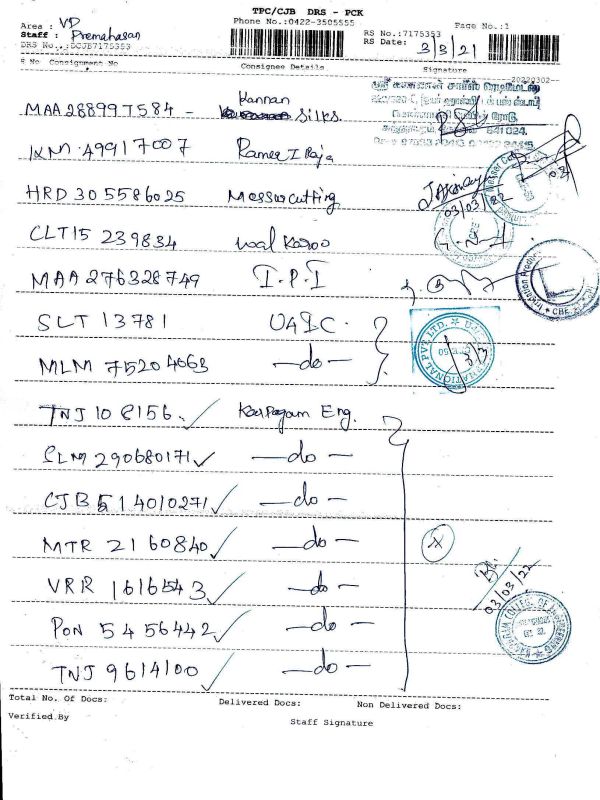 TPC/CJB DRS - PCK
Area : VP Phone No.:0422-3505555 Page No.:1
Staff : Premahasan RS No.:7175353
DRS No.:DCJB7175353 RS Date: 3/3/21
S No Consignment No Consignee Details Signature
20220302
MAA 288997584 - Kannan Silks.
KNM 49917007 Ramee I Raja
HRD 305586025 Messer cutting
03/03/22
CLT15 239834
MAA 276328749 I.P.I
SLT 13781 UAIC.
MLM 75204063 -do-
TNJ 108156. ✓ Karpagam Eng.
SLM 290680171 ✓ -do-
CJB 514010271 ✓ -do-
MTR 2160840 ✓ -do-
VRR 1616543 ✓ -do-
03/03/22
PON 5456442 ✓ -do-
TNJ 9614100 ✓ -do-
Total No. Of Docs: Delivered Docs: Non Delivered Docs:
Verified.By Staff Signature